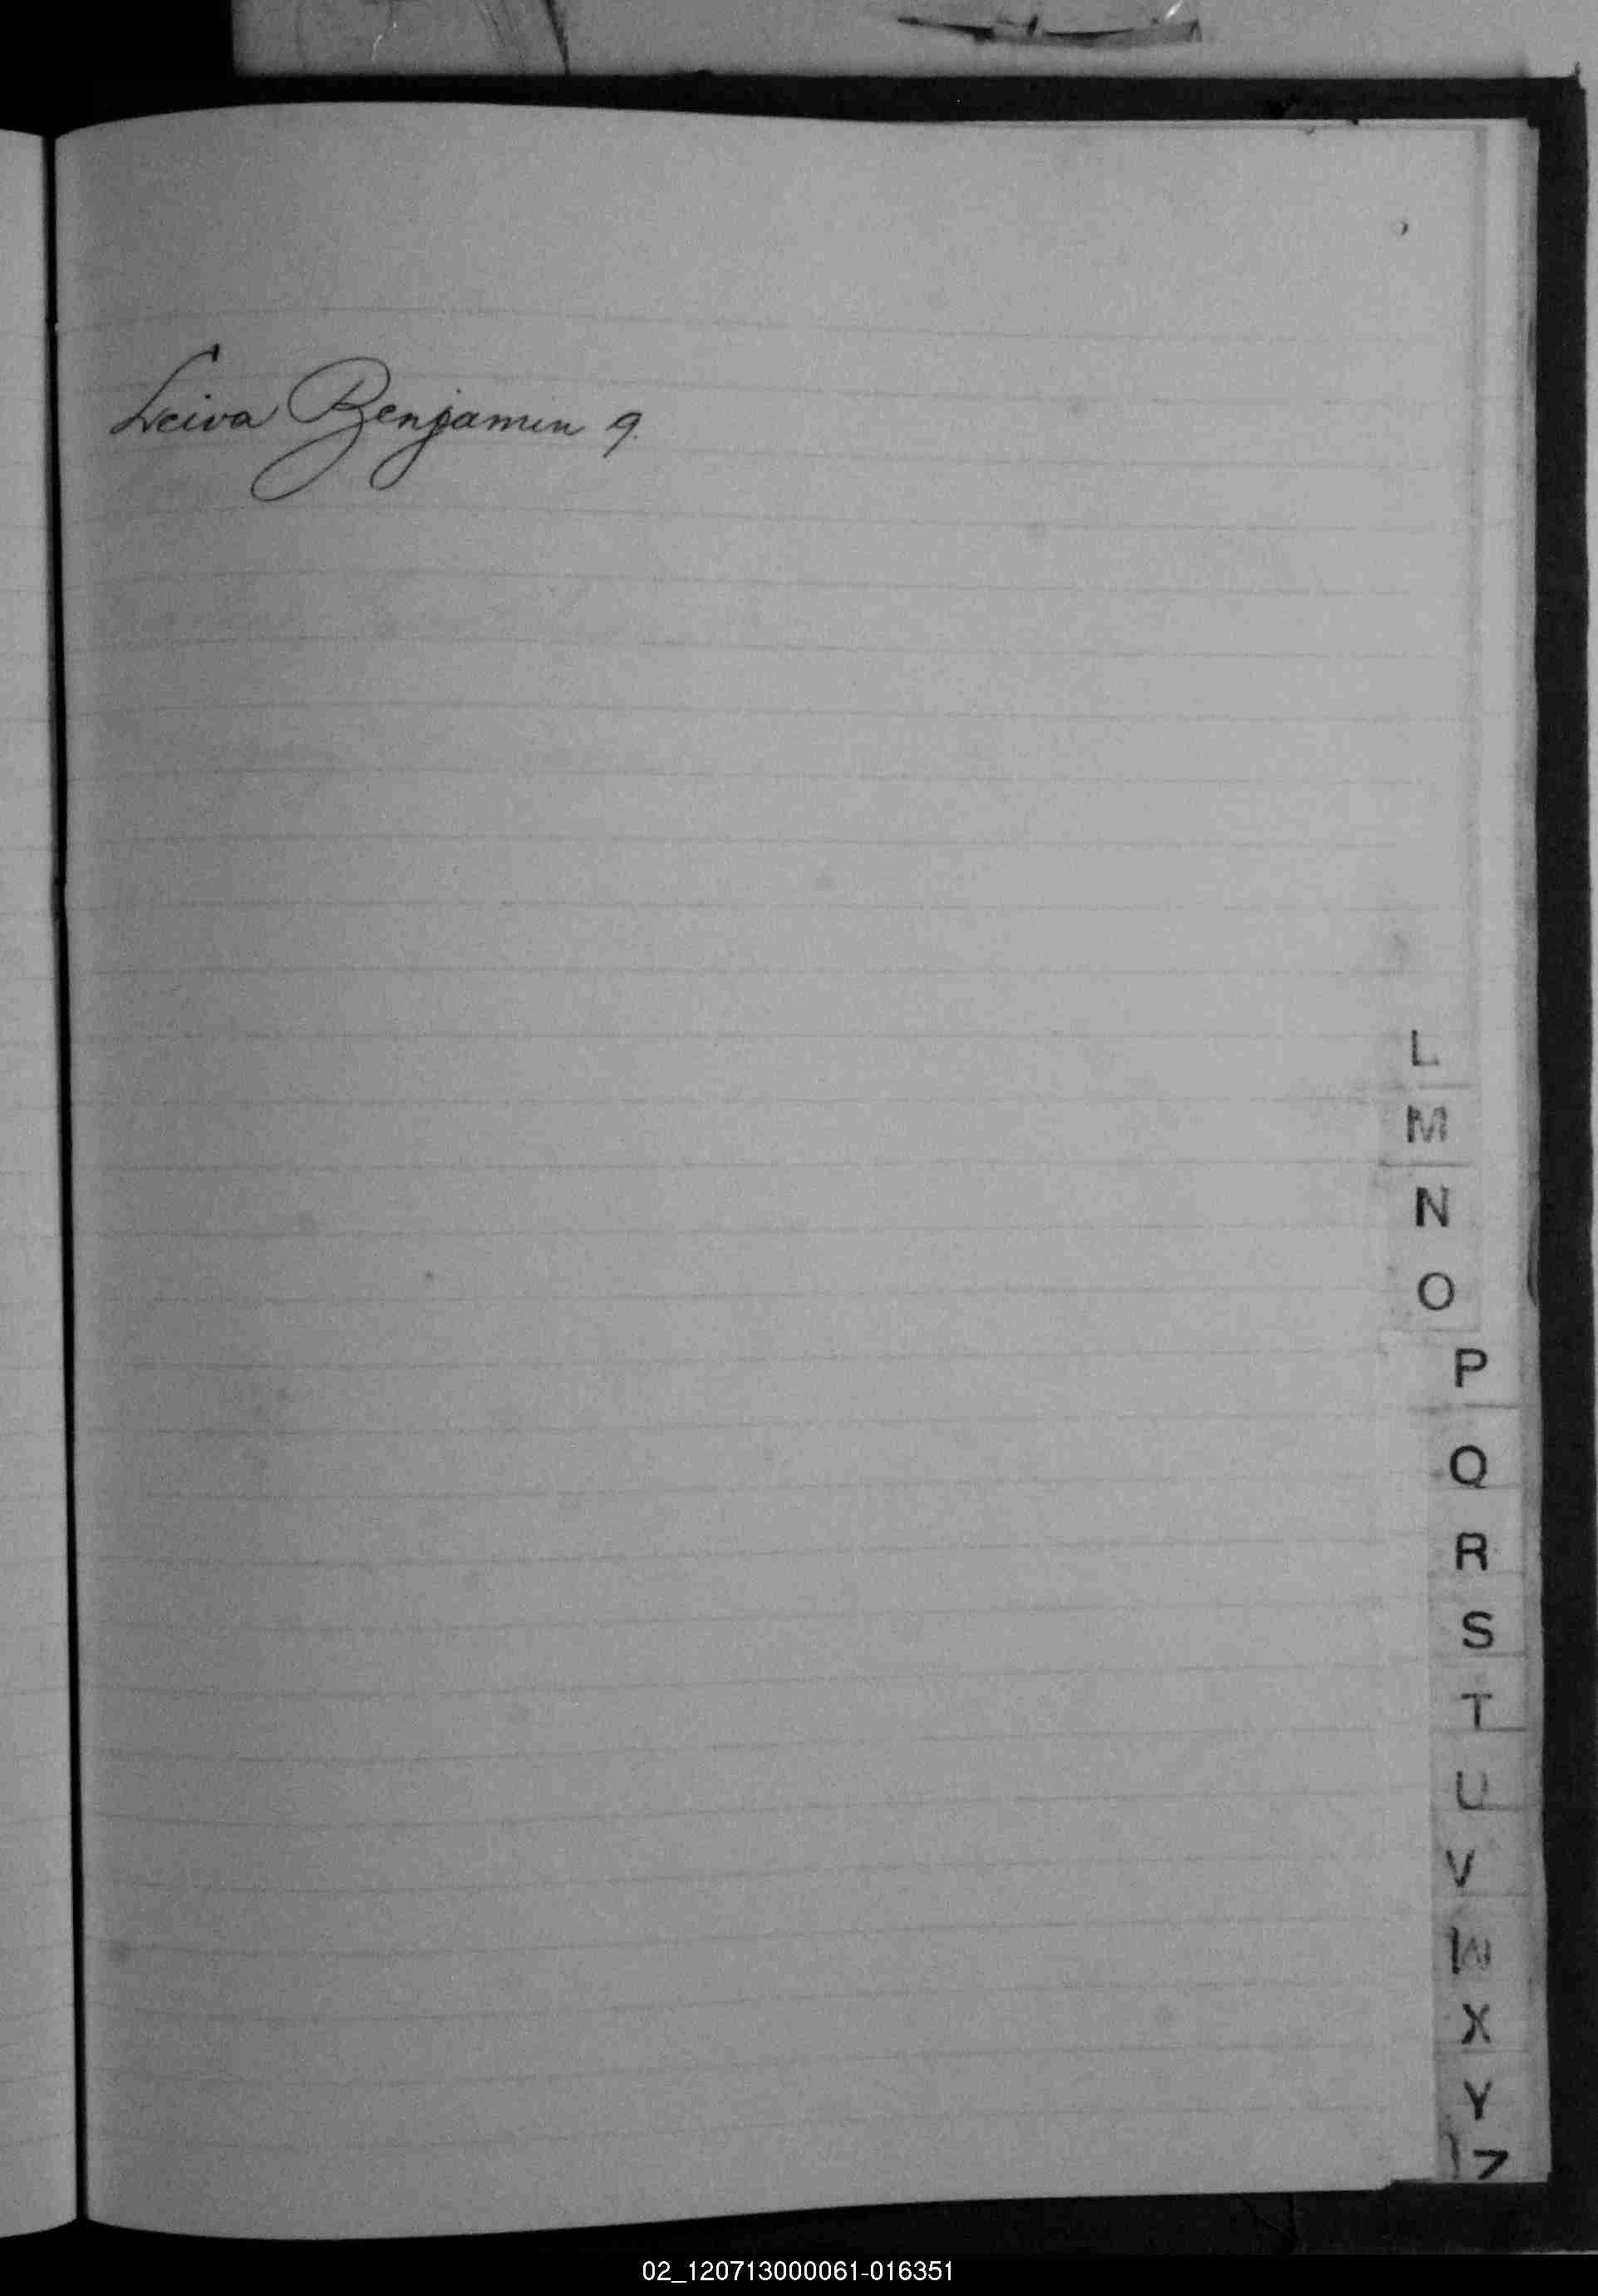 Leiva Benjamin 9.
L
M
N
O
P
Q
R
S
T
U
V
W
X
Y
Z
02_120713000061-016351